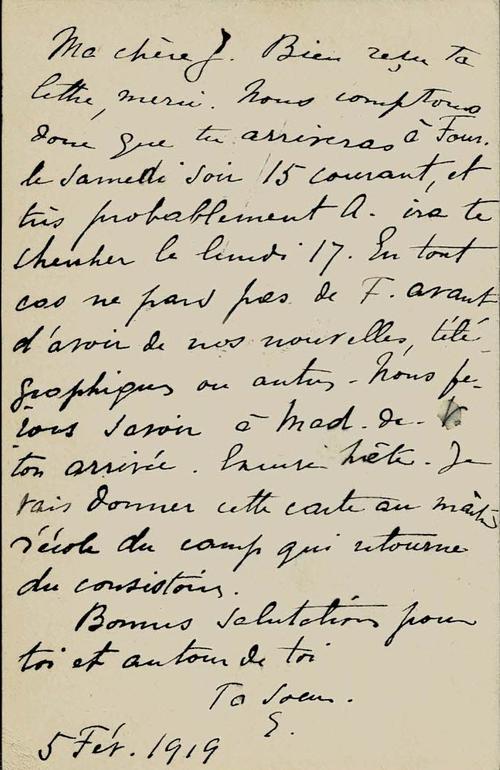 Ma chère J. Bien reçu ta
lettre, merci. Nous comptons
donc que tu arriveras à Four.
le Samedi soir 15 courant, et
très probablement A. ira te
chercher le lundi 17. En tout
cas ne pars pas de F. avant
d'avoir de nos nouvelles, télé-
graphiques ou autres - Nous fe-
rons savoir à Mad. de.
ton arrivée. hâte. Je
vais donner cette carte au maître
d'école du camp qui retourne
du consistoire.
Bonnes salutations pour
toi et autour de toi
Ta Soeur.
5 Fév. 1919